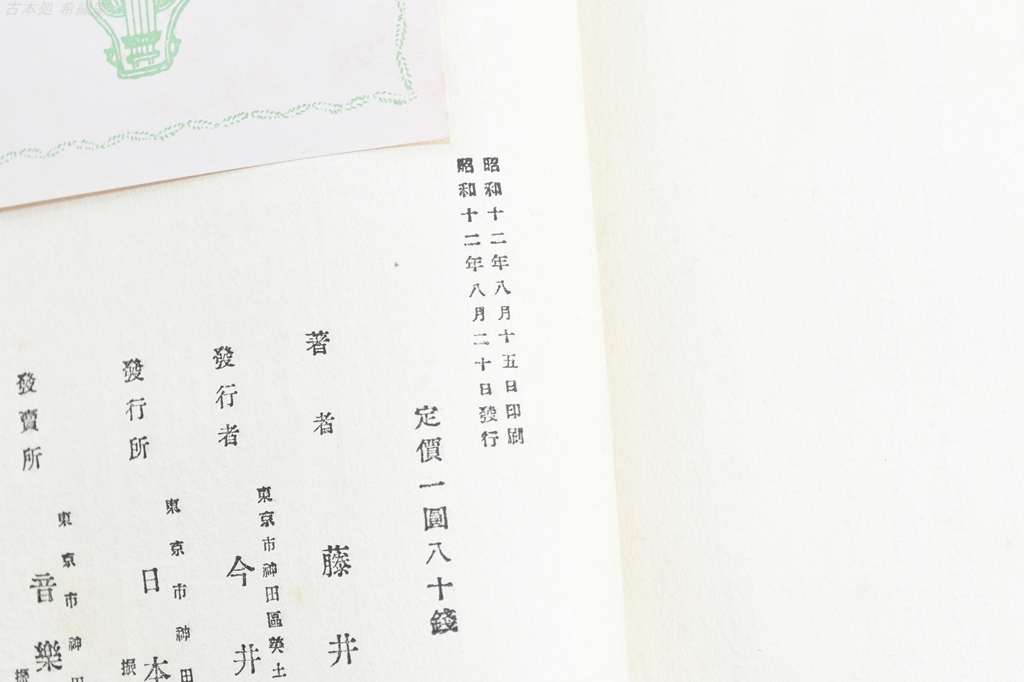 古本処
昭和十二年八月十五日印刷
昭和十二年八月二十日發行
定價一圓八十錢
著者
藤井
發行者
東京市神田區
今井
發行所
東京市神田
日本
振
發賣所
東京市神田
音樂
振